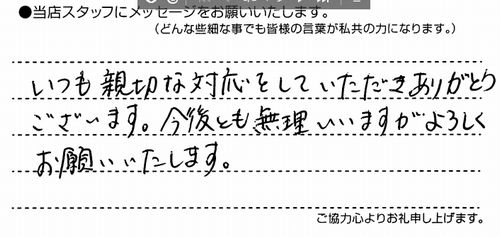 ●当店スタッフにメッセージをお願いいたします。
(どんな些細な事でも皆様の言葉が私共の力になります。)
いつも親切な対応をしていただきありがとう
ございます。今後とも無理いいますがよろしく
お願いいたします。
ご協力心よりお礼申し上げます。